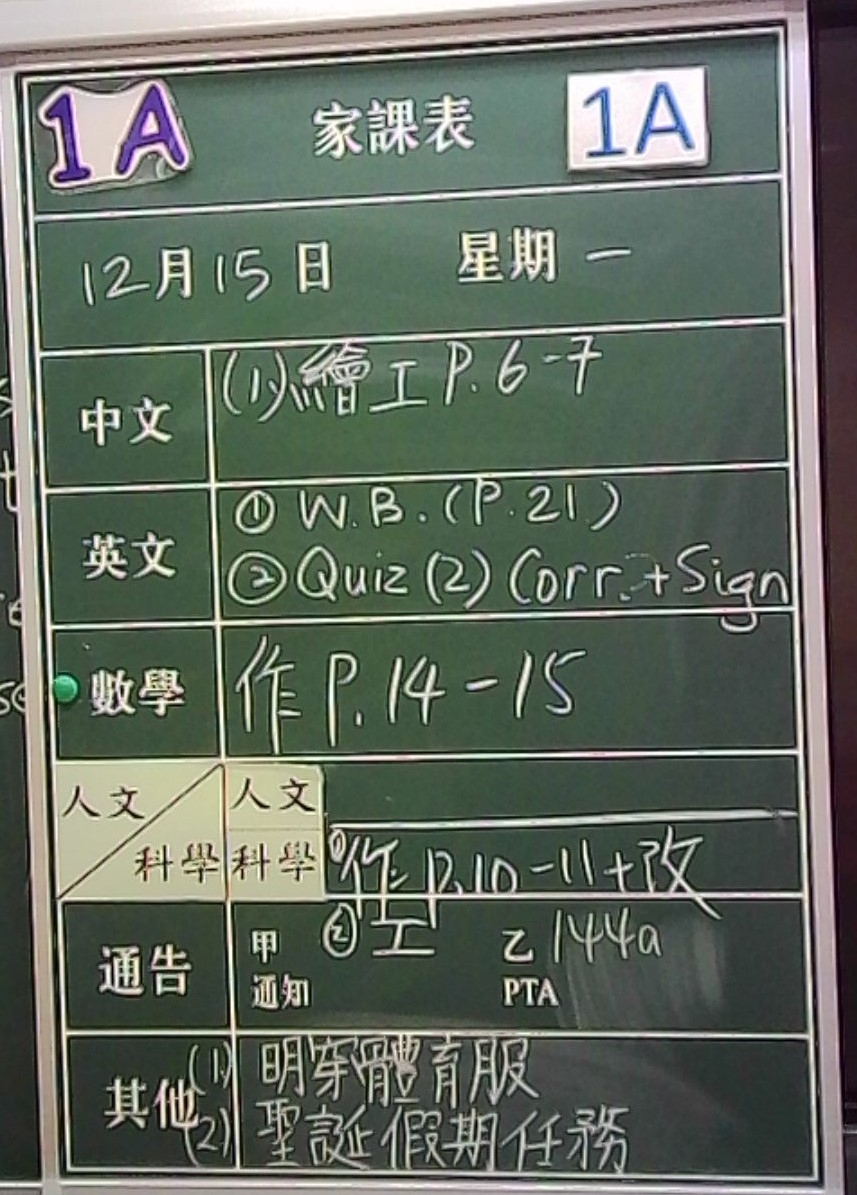 1A 家課表 1A
12月15日 星期一
中文 (1)繪工 P.6-7
英文 ① W.B.(P.21)
② Quiz (2) Corr.+Sign
數學 作 P.14-15
人文 人文
科學 科學 ①作 P.10-11+改
通告 甲 ②工 乙 144a
通知 PTA
其他 (1) 明穿體育服
(2) 聖誕假期任務